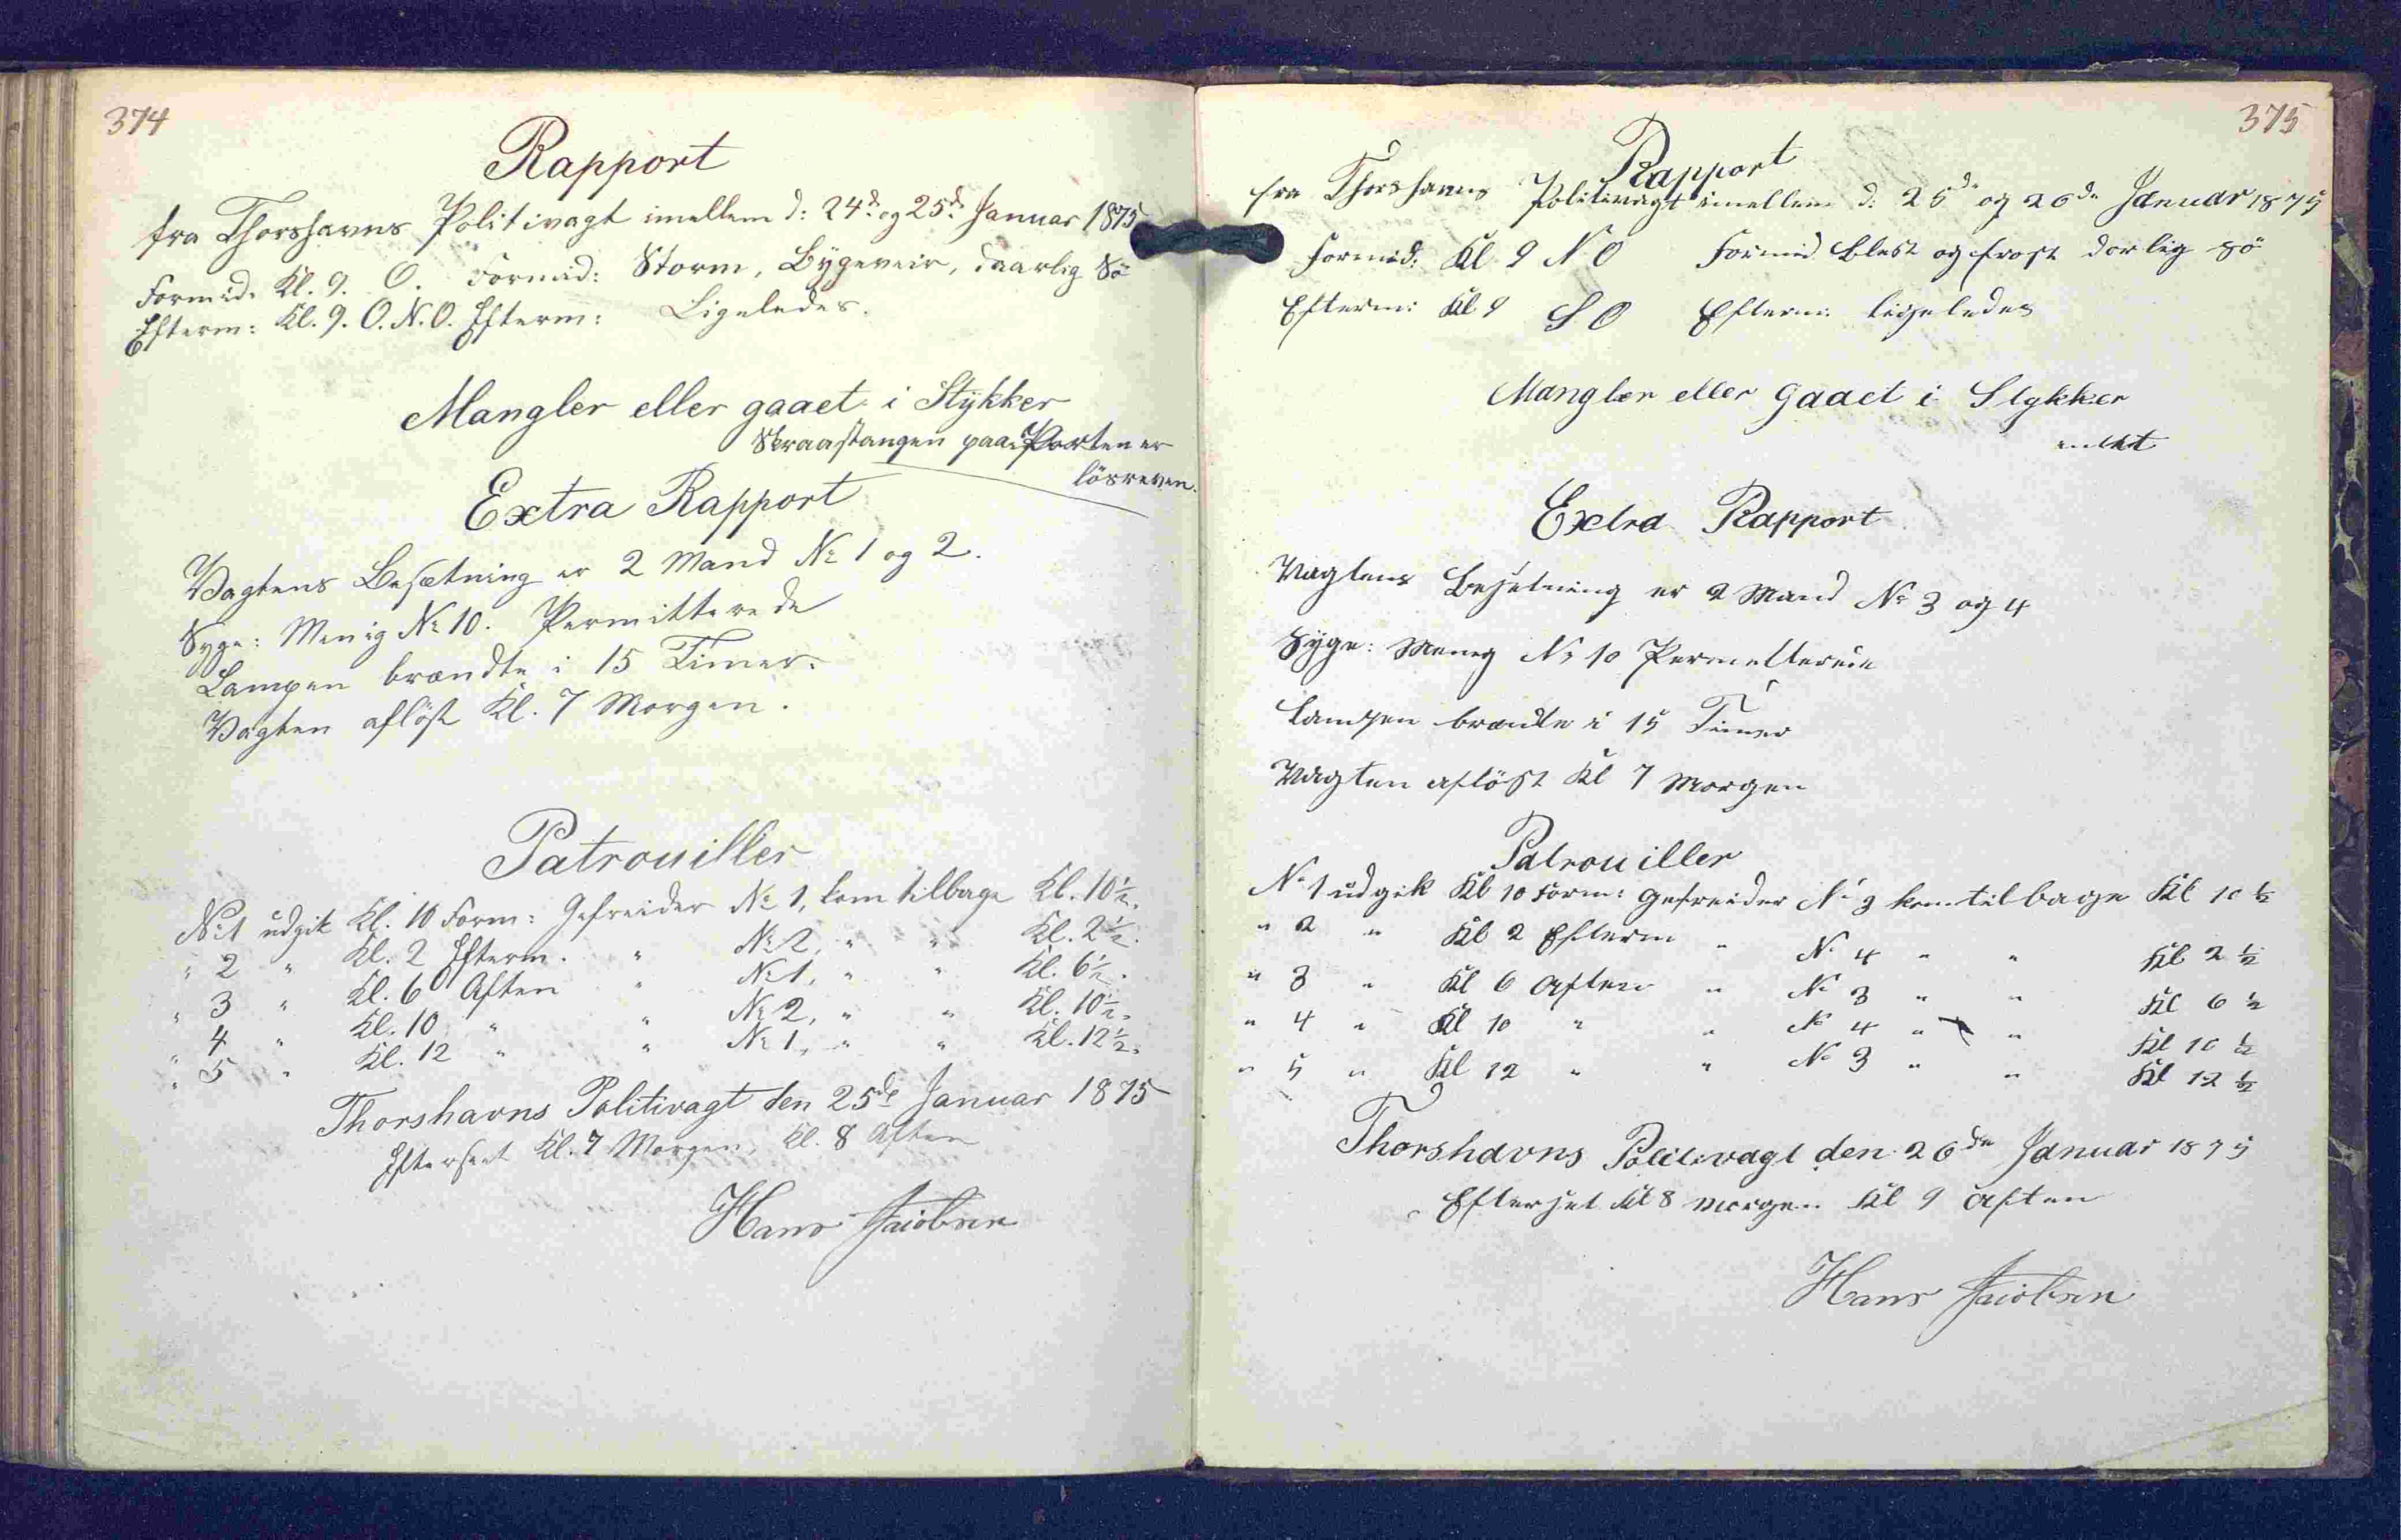 374
Rapport
fra Thorshavns Politivagt imellem d: 24de og 25de Januar 1875
Formid: Kl. 9. O. Formid: Storm, Bygeveir, daarlig Sö
Efterm: Kl. 9. O.N.O. Efterm: Ligeledes.
Mangler eller gaaet i Stykker
Skraastangen paa Porten er
lösreven.
Extra Rapport
Vagtens Besætning er 2 Mand No 1 og 2.
Syge: Menig No 10. Permitterede
Lampen brændte i 15 Timer.
Vagten aflöst Kl. 7 Morgen.
Patrouiller
No 1 udgik Kl. 10 Form: Gefreider No 1, kom tilbage Kl. 10½.
" 2 " Kl. 2 Efterm. " No 2, " " Kl. 2½.
" 3 " Kl. 6 Aften " No 1, " " Kl. 6½.
" 4 " Kl. 10 " " No 2, " " Kl. 10½.
" 5 " Kl. 12 " " No 1, " " Kl. 12½.
Thorshavns Politivagt den 25de Januar 1875
Efterseet Kl. 7 Morgen, Kl. 8 Aften
Hans Jacobsen
375
Rapport
fra Thorshavns Politivagt imellem d: 25de og 26de Januar 1875
Formid: Kl 9 NO Formid Blest og frost dorlig sö
Efterm: Kl 9 SO Efterm: ligeledes
Mangler eller Gaaet i Stykker
intet
Extra Rapport
Vagtens Besetning er 2 Mand No 3 og 4
Syge: Meneg No 10 Permetterede
Lampen brændte i 15 Timer
Vagten aflöst Kl 7 Morgen
Patrouiller
No 1 udgik Kl 10 Form: Gefreider No 3 kom tilbage Kl 10½
" 2 " Kl 2 Efterm " No 4 " " Kl 2½
" 3 " Kl 6 Aften " No 3 " " Kl 6½
" 4 " Kl 10 " " No 4 " " Kl 10½
" 5 " Kl 12 " " No 3 " " Kl 12½
Thorshavns Politivagt den 26de Januar 1875
Efterset Kl 8 Morgen Kl 9 Aften
Hans Jacobsen